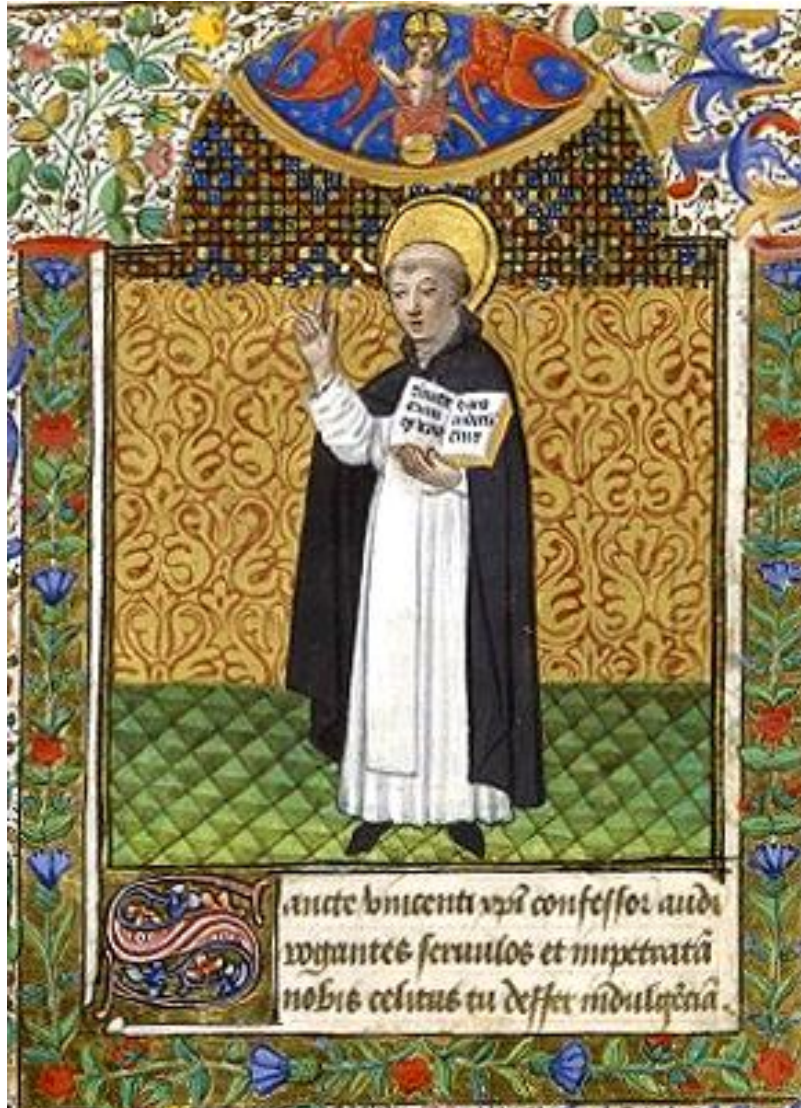 Sancte vincenti xpi confessor audi
rogantes seruulos et inpetratā
nobis celitus tu deffer indulgēciā.